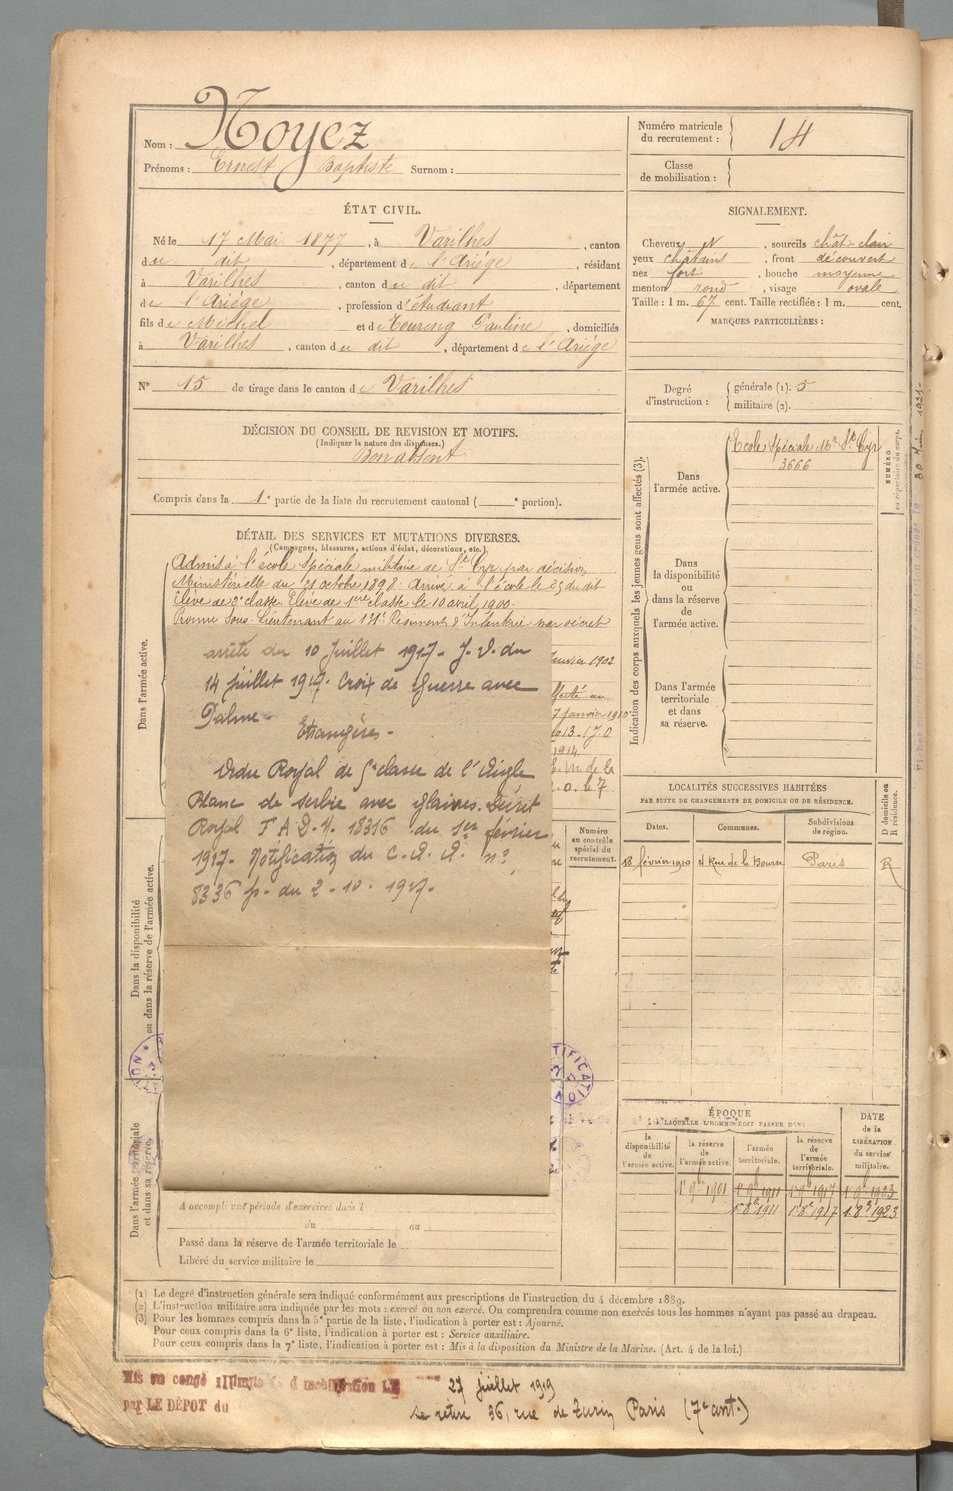 Nom : Noyez
Prénoms : Ernest Baptiste Surnom :
Numéro matricule du recrutement : 14
Classe de mobilisation :
ÉTAT CIVIL.
Né le 17 Mai 1877, à Varilhes, canton
du dit, département de l'Ariége, résidant
à Varilhes, canton du dit, département
de l'Ariége, profession d'étudiant
fils de Michel et de Toureng Pauline, domiciliés
à Varilhes, canton du dit, département de l'Ariége
N° 15 de tirage dans le canton de Varilhes
SIGNALEMENT.
Cheveux N, sourcils chât clair
yeux châtains, front découvert
nez fort, bouche moyenne
menton rond, visage ovale
Taille : 1 m. 67 cent. Taille rectifiée : 1 m. cent.
MARQUES PARTICULIÈRES :
Degré d'instruction : générale (1). 5
militaire (2).
DÉCISION DU CONSEIL DE REVISION ET MOTIFS.
(Indiquer la nature des dispenses.)
Bon absent
Compris dans la 1e partie de la liste du recrutement cantonal ( e portion).
DÉTAIL DES SERVICES ET MUTATIONS DIVERSES.
(Campagnes, blessures, actions d'éclat, décorations, etc.)
Dans l'armée active.
Admis à l'école Spéciale militaire de St Cyr par décision
Ministérielle du 21 octobre 1898. Arrivé à l'école le 25 du dit
Elève de 2e classe. Elève de 1ère classe le 10 avril 1900.
Promu Sous-Lieutenant au 131e Régiment d'Infanterie par décret
arrêté du 10 Juillet 1917. J.O. du
14 juillet 1917. Croix de Guerre avec
Palme.
Etrangères.
Ordre Royal de 5e classe de l'Aigle
Blanc de Serbie avec glaives. Décret
Royal F A D. N. 18316 du 1er février
1917. Notification du C. Q. G. n°
8336 p. du 2-10-1917.
Janvier 1902
7 janvier 1910
1914
Dans la disponibilité ou dans la réserve de l'armée active.
Numéro au contrôle spécial du recrutement.
Dans l'armée territoriale et dans sa réserve.
A accompli une période d'exercices dans l
du au
Passé dans la réserve de l'armée territoriale le
Libéré du service militaire le
Indication des corps auxquels les jeunes gens sont affectés (3).
Dans l'armée active.
Ecole Spéciale Mre St Cyr
3666
NUMÉRO au répertoire du corps.
Dans la disponibilité ou dans la réserve de l'armée active.
Dans l'armée territoriale et dans sa réserve.
LOCALITÉS SUCCESSIVES HABITÉES
PAR SUITE DE CHANGEMENTS DE DOMICILE OU DE RÉSIDENCE.
Dates. Communes. Subdivisions de région. D domicile ou R résidence.
18 février 1910 4 Rue de la Bourse Paris R
ÉPOQUE
A LAQUELLE L'HOMME DOIT PASSER DANS
la disponibilité de l'armée active. la réserve de l'armée active. l'armée territoriale. la réserve de l'armée territoriale. DATE de la LIBÉRATION du service militaire.
1er 9bre 1901 1er 9bre 1911 1er 9bre 1917 1er 9bre 1923
1er 8e 1911 1er 8e 1917 1er 8e 1923
(1) Le degré d'instruction générale sera indiqué conformément aux prescriptions de l'instruction du 4 décembre 1889.
(2) L'instruction militaire sera indiquée par les mots : exercé ou non exercé. On comprendra comme non exercés tous les hommes n'ayant pas passé au drapeau.
(3) Pour les hommes compris dans la 5e partie de la liste, l'indication à porter est : Ajourné.
Pour ceux compris dans la 6e liste, l'indication à porter est : Service auxiliaire.
Pour ceux compris dans la 7e liste, l'indication à porter est : Mis à la disposition du Ministre de la Marine. (Art. 4 de la loi.)
Mis en congé illimité de démobilisation LE 27 juillet 1919
par LE DÉPOT du
se retire 36, rue de Turin Paris (7e arrt.)